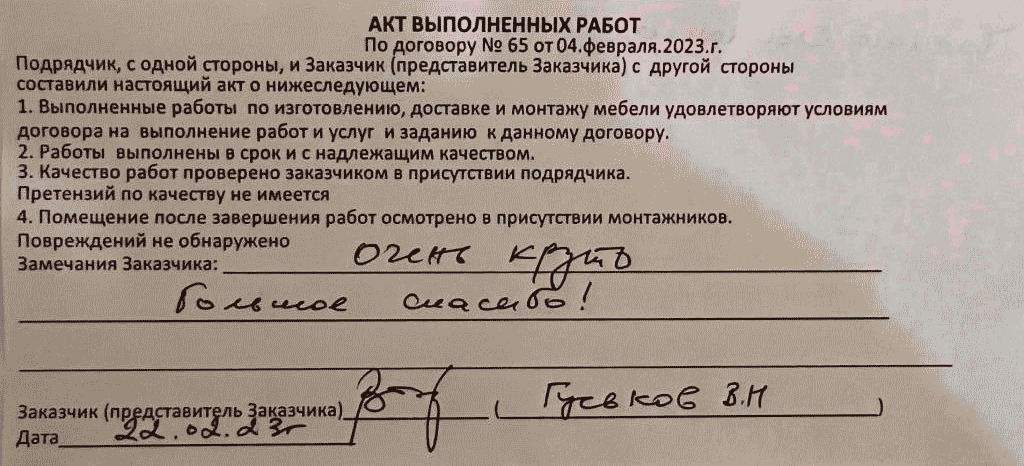 АКТ ВЫПОЛНЕННЫХ РАБОТ
По договору № 65 от 04.февраля.2023.г.
Подрядчик, с одной стороны, и Заказчик (представитель Заказчика) с другой стороны
составили настоящий акт о нижеследующем:
1. Выполненные работы по изготовлению, доставке и монтажу мебели удовлетворяют условиям
договора на выполнение работ и услуг и заданию к данному договору.
2. Работы выполнены в срок и с надлежащим качеством.
3. Качество работ проверено заказчиком в присутствии подрядчика.
Претензий по качеству не имеется
4. Помещение после завершения работ осмотрено в присутствии монтажников.
Повреждений не обнаружено
Замечания Заказчика: Очень круто
Большое спасибо!
Заказчик (представитель Заказчика) ( Гуськов В.Н )
Дата 22.02.23г